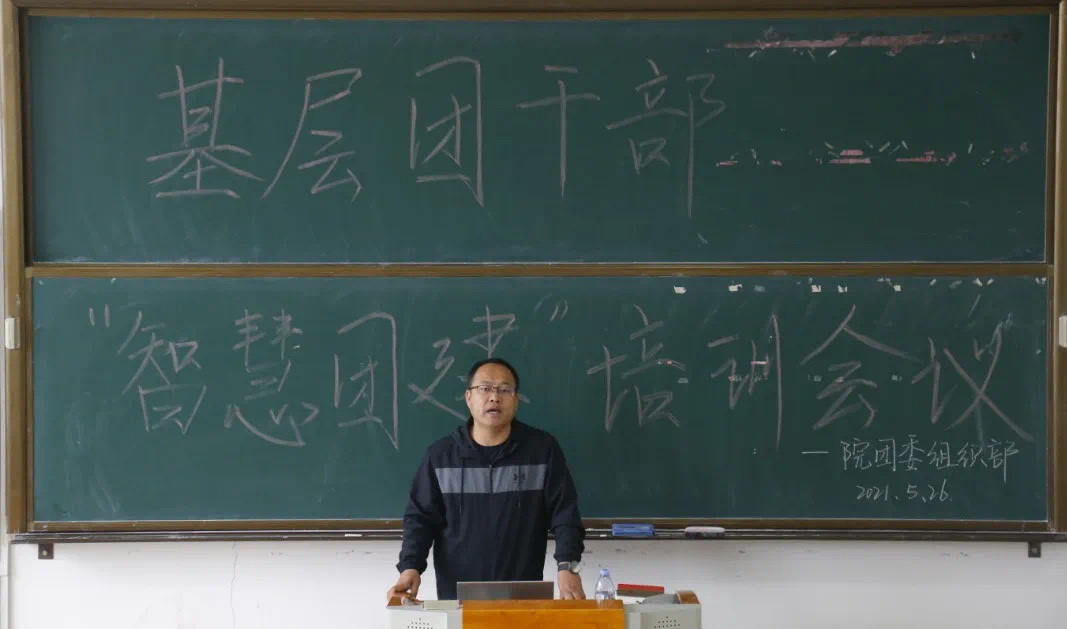 基层团干部
“智慧团建”培训会议
—院团委组织部
2021.5.26.